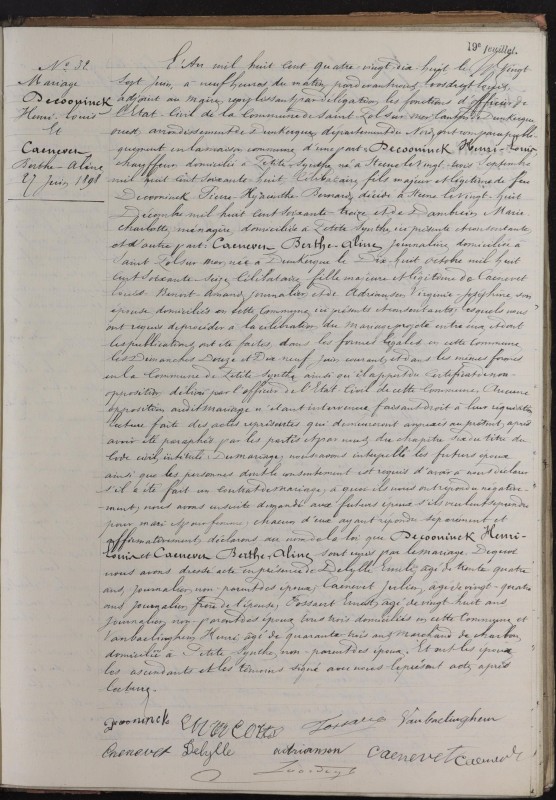 19e feuillet.
No 32
Mariage
Decooninck
Henri-Louis
Et
Caenevet
Berthe-Aline
27 Juin 1898
L'An mil huit cent quatre-vingt dix-huit le vingt
sept juin, à neuf heures du matin, pardevant nous
adjoint au maire, remplissant par délégation, les fonctions d'officier de
l'Etat-Civil de la Commune de Saint-Pol-sur-mer, Canton de Dunkerque
ouest, arrondissement de Dunkerque, département du Nord, ont comparu publi-
quement en la maison commune, d'une part: Decooninck Henri-Louis,
chauffeur, domicilié à Petite-Synthe, né à le vingt-trois Septembre
mil huit cent soixante-huit Célibataire, fils majeur et légitime de feu
Decooninck Pierre-Hyacinthe-Bernard, décédé à le vingt-huit
Décembre mil huit cent soixante-treize et de Marie-
Charlotte, ménagère, domiciliée à Petite-Synthe, ici présente et consentante,
et d'autre part: Caenevet Berthe-Aline, journalière, domiciliée à
Saint-Pol-sur-mer, née à Dunkerque le Dix-huit octobre mil huit
cent soixante-seize, Célibataire, fille majeure et légitime de Caenevet
Louis-Benoit-Amand, journalier, et de Adriansen Virginie-Joséphine, son
épouse domiciliés en cette Commune, ici présents et consentants; lesquels nous
ont requis de procéder à la célébration du mariage projeté entre eux, et dont
les publications ont été faites, dans les formes légales, en cette Commune
les Dimanches Douze et Dix-neuf Juin courant, et dans les mêmes formes
en la Commune de Petite-Synthe, ainsi qu'il appert du Certificat de non-
opposition délivré par l'officier de l'Etat-Civil de cette Commune, Aucune
opposition audit mariage n'étant intervenue, faisant droit à leur réquisition
lecture faite des actes représentés qui demeureront annexés au présent, après
avoir été paraphés par les parties et par nous, du chapitre six du titre du
Code civil, intitulé: Du mariage; nous avons interpellé les futurs époux
ainsi que les personnes dont le consentement est requis d'avoir à nous déclarer
s'il a été fait un contrat de mariage, à quoi ils nous ont répondu négative-
ment; nous avons ensuite demandé aux futurs époux s'ils veulent se prendre
pour mari et pour femme; chacun d'eux ayant répondu séparément et
affirmativement, déclarons, au nom de la loi que Decooninck Henri-
Louis et Caenevet Berthe-Aline sont unis par le mariage. De quoi
nous avons dressé acte en présence de Delylle Emile, âgé de trente-quatre
ans, journalier, non-parent des époux, Caenevet Julien, âgé de vingt-quatre
ans, journalier, Frère de l'épouse, Fossaert Ernest, âgé de vingt-huit ans
journalier, non-parent des époux, tous trois domiciliés en cette Commune, et
Vanbaelinghem Henri, âgé de quarante-trois ans, marchand de charbon,
domicilié à Petite-Synthe, non-parent des époux. Et ont les époux,
les ascendants et les témoins signé avec nous le présent acte, après
lecture.
Decooninck Vanbaelinghem
Caenevet Delylle adriansen caenevet Caenevet